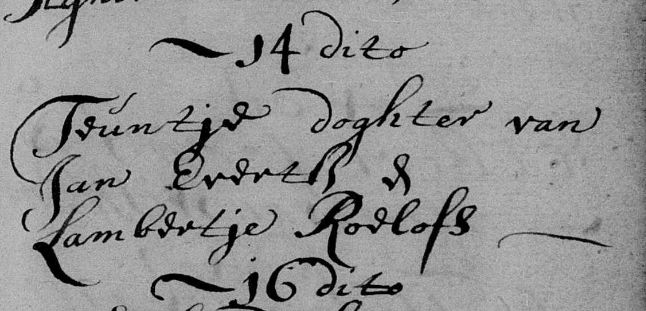 ~ 14 dito
Teuntje doghter van
Jan Everts &
Lambertje Roelofs —
~ 16 dito